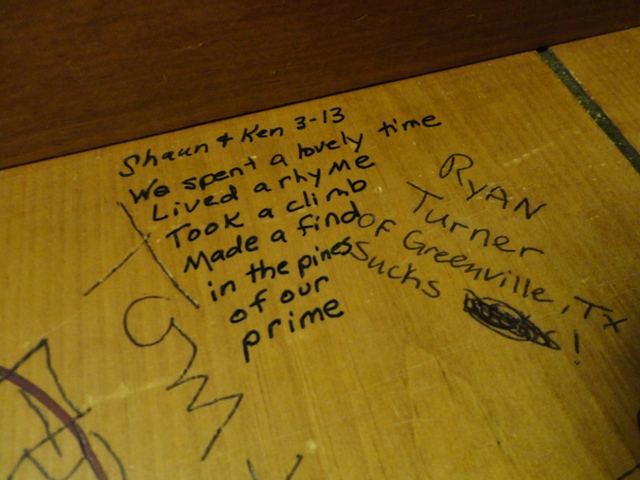 Shaun + Ken 3-13
We spent a lovely time
Lived a rhyme
Took a climb
Made a find
in the pines
of our
prime
RYAN
Turner
of Greenville, TX
Sucks !
GM